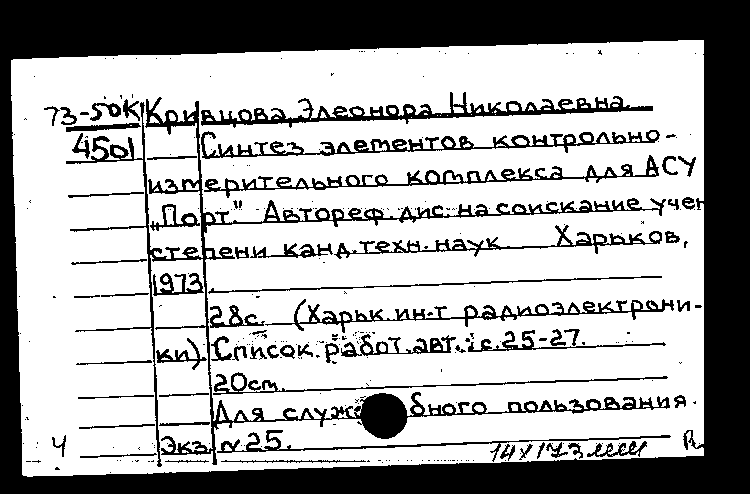 73-50К Кривцова, Элеонора Николаевна
4501 Синтез элементов контрольно-
измерительного комплекса для АСУ
„Порт." Автореф. дис. на соискание учен
степени канд. техн. наук Харьков,
1973.
28с. (Харьк. ин-т радиоэлектрони-
ки). Список. работ. авт.: с. 25-27.
20см.
Для служебного пользования.
4 Экз. №25.
14 X 173